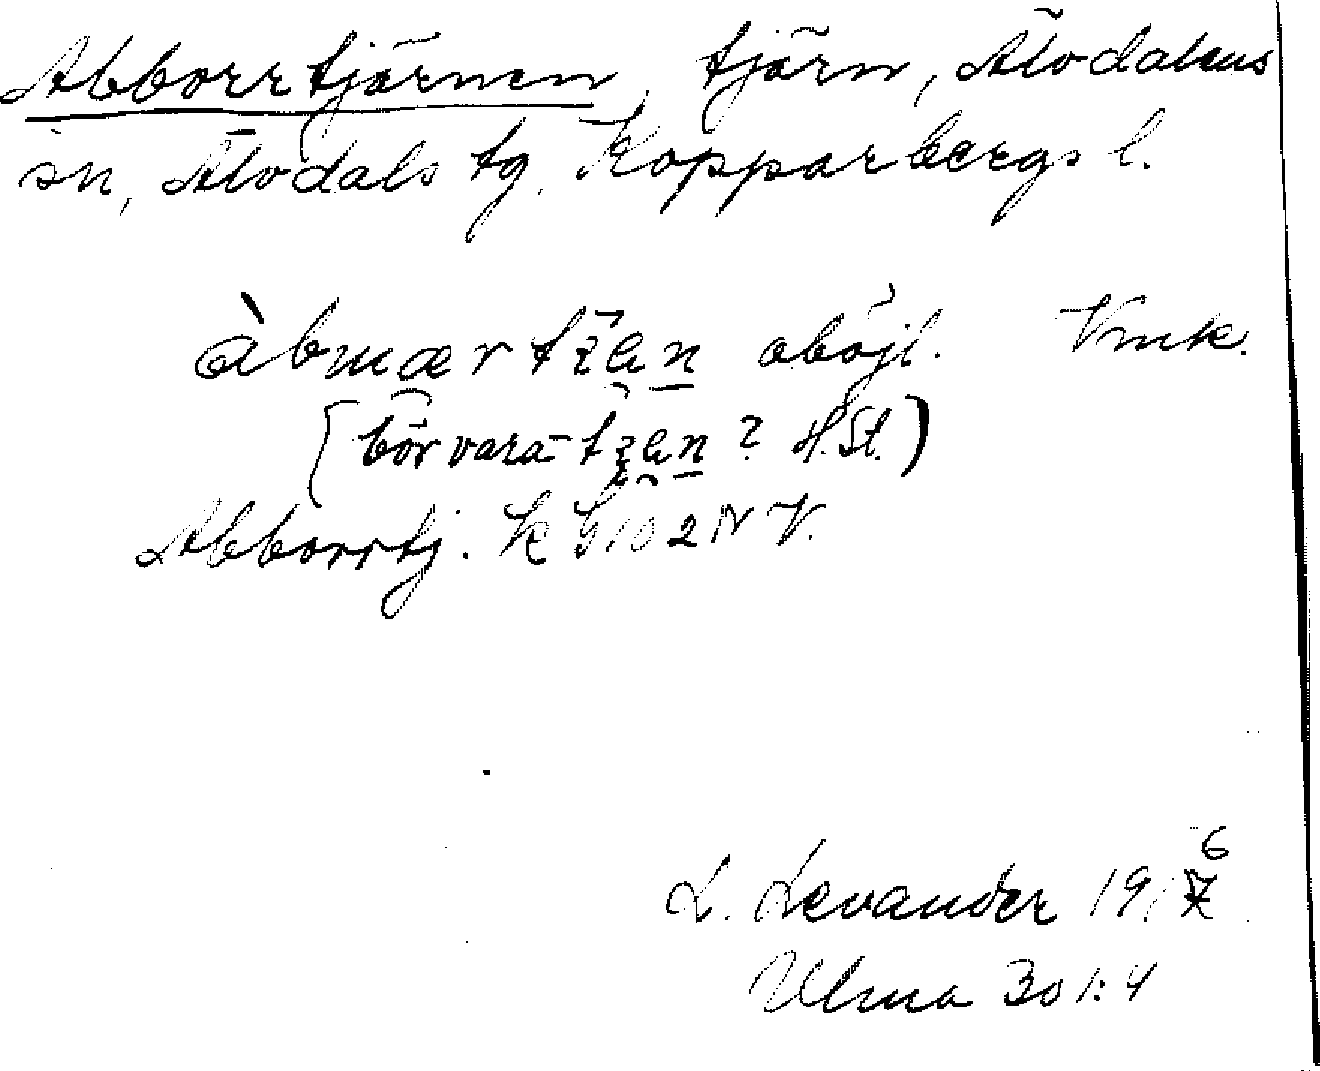 Abborrtjärnen, tjärn, Älvdalens
sn, Älvdals tg. Kopparbergs l.
oböjl. Vmk.
(bör vara ? H.St.)
Abborrtj. K 102 N V.
L. Levander 1916
Ulma 301:4